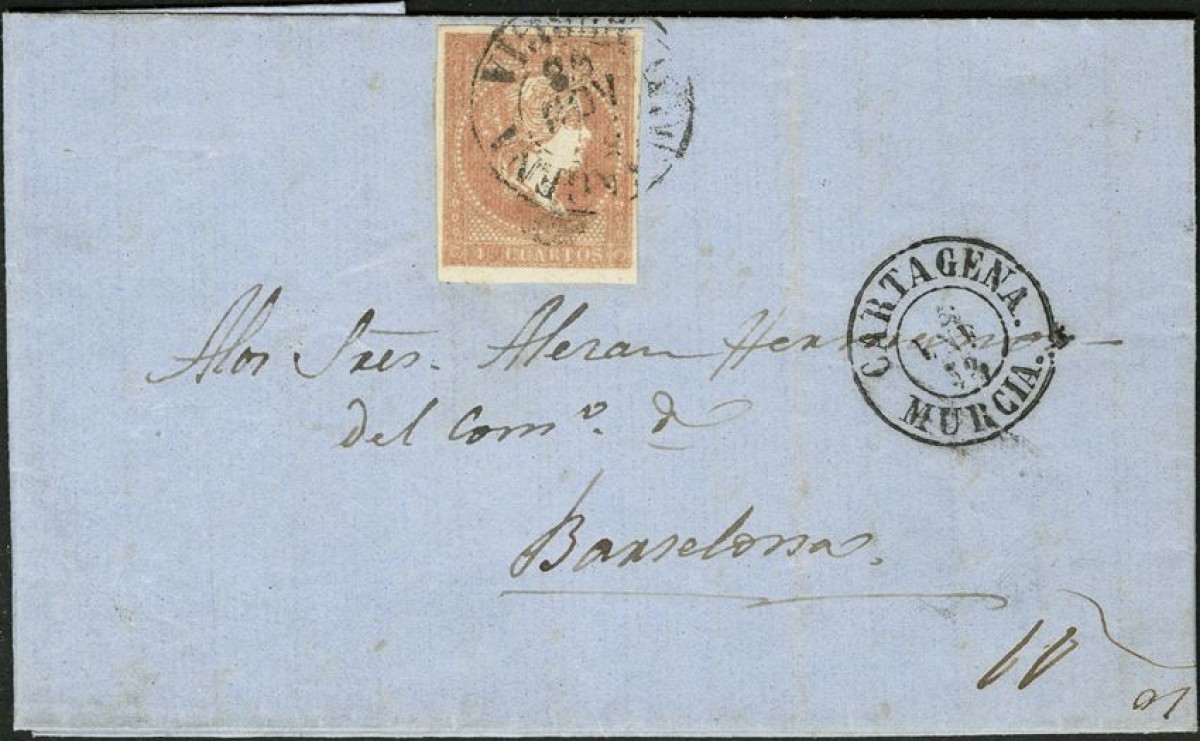 4 CUARTOS
CARTAGENA.
MURCIA.
A los Sres. Aleran Hermanos
del Comº. d
Barselona.
10